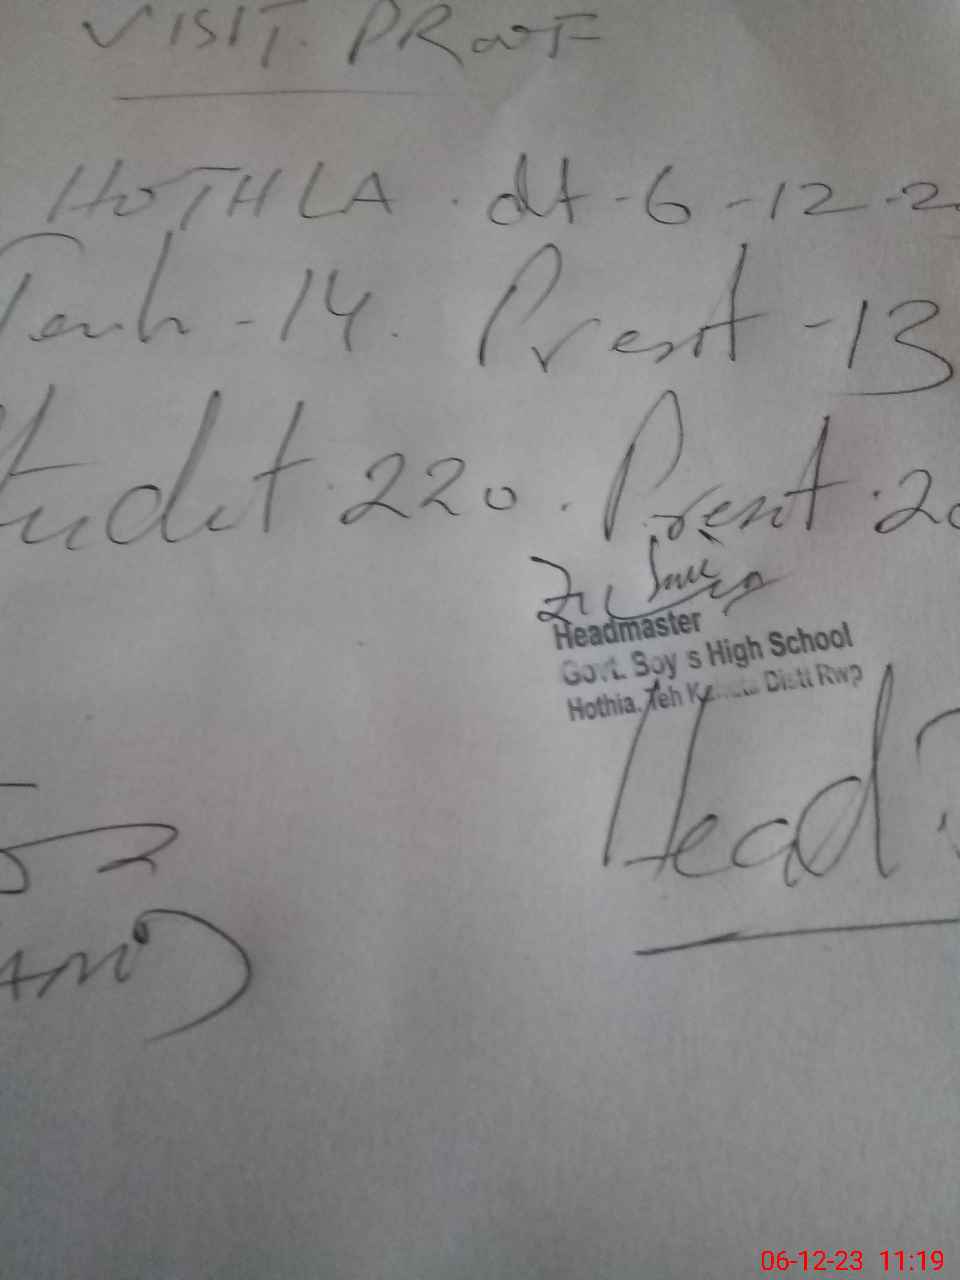 VISIT. PROOF
HOTHLA. dt-6-12-2
Teach-14. Present-13
Student.220. Present.20
Headmaster
Govt. Boy s High School
Hothia. Teh Distt Rwp
Head
52
06-12-23 11:19